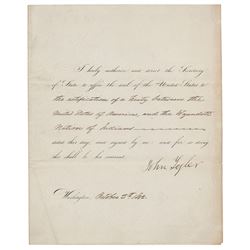 I hereby authorize and direct the Secretary
of State to affix the seal of the United States to
the ratification of a treaty between the
United States of America, and the Wyandott
Nation of Indians
dated this day, and signed by me and for so doing
this shall be his warrant.
John Tyler
Washington October 5th, 1842.